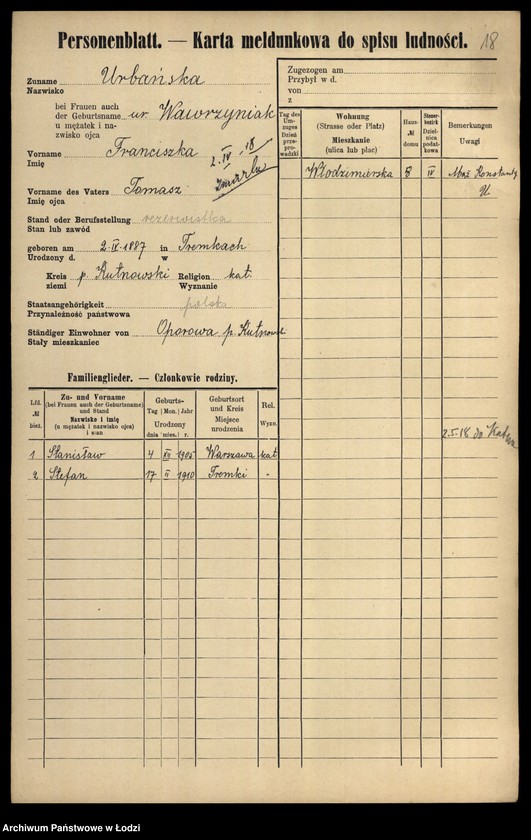 Personenblatt. — Karta meldunkowa do spisu ludności. 18
Zuname Urbańska
Nazwisko
bei Frauen auch
der Geburtsname ur. Wawrzyniak
u mężatek i na-
zwisko ojca
Vorname Franciszka
Imię
2.IV.18
zmarła
Vorname des Vaters Tomasz
Imię ojca
Stand oder Berufsstellung rezerwistka
Stan lub zawód
geboren am 2.IV.1887 in Tremkach
Urodzony d. w
Kreis p. Kutnowski Religion kat.
ziemi Wyznanie
Staatsangehörigkeit polska
Przynależność państwowa
Ständiger Einwohner von Oporowa p. Kutnowsk
Stały mieszkaniec
Zugezogen am
Przybył w d.
von
z
Tag des Um-zuges
Dzień prze-pro-wadzki
Wohnung
(Strasse oder Platz)
Mieszkanie
(ulica lub plac)
Haus-
№
domu
Steuer-
bezirk
Dziel-
nica
podat-
kowa
Bemerkungen
Uwagi
Włodzimierska 8 IV Mąż Konstanty
2.5.18 do
Familienglieder. — Członkowie rodziny.
Lfd.
№
bież.
Zu- und Vorname
(bei Frauen auch der Geburtsname)
und Stand
Nazwisko i imię
(u mężatek i nazwisko ojca)
i stan
Geburts-
Tag Mon. Jahr
Urodzony
dnia mies. r.
Geburtsort
und Kreis
Miejsce
urodzenia
Rel.
Wyzn.
1 Stanisław 4 XII 1905 Warszawa kat
2 Stefan 17 II 1910 Tremki -
Archiwum Państwowe w Łodzi